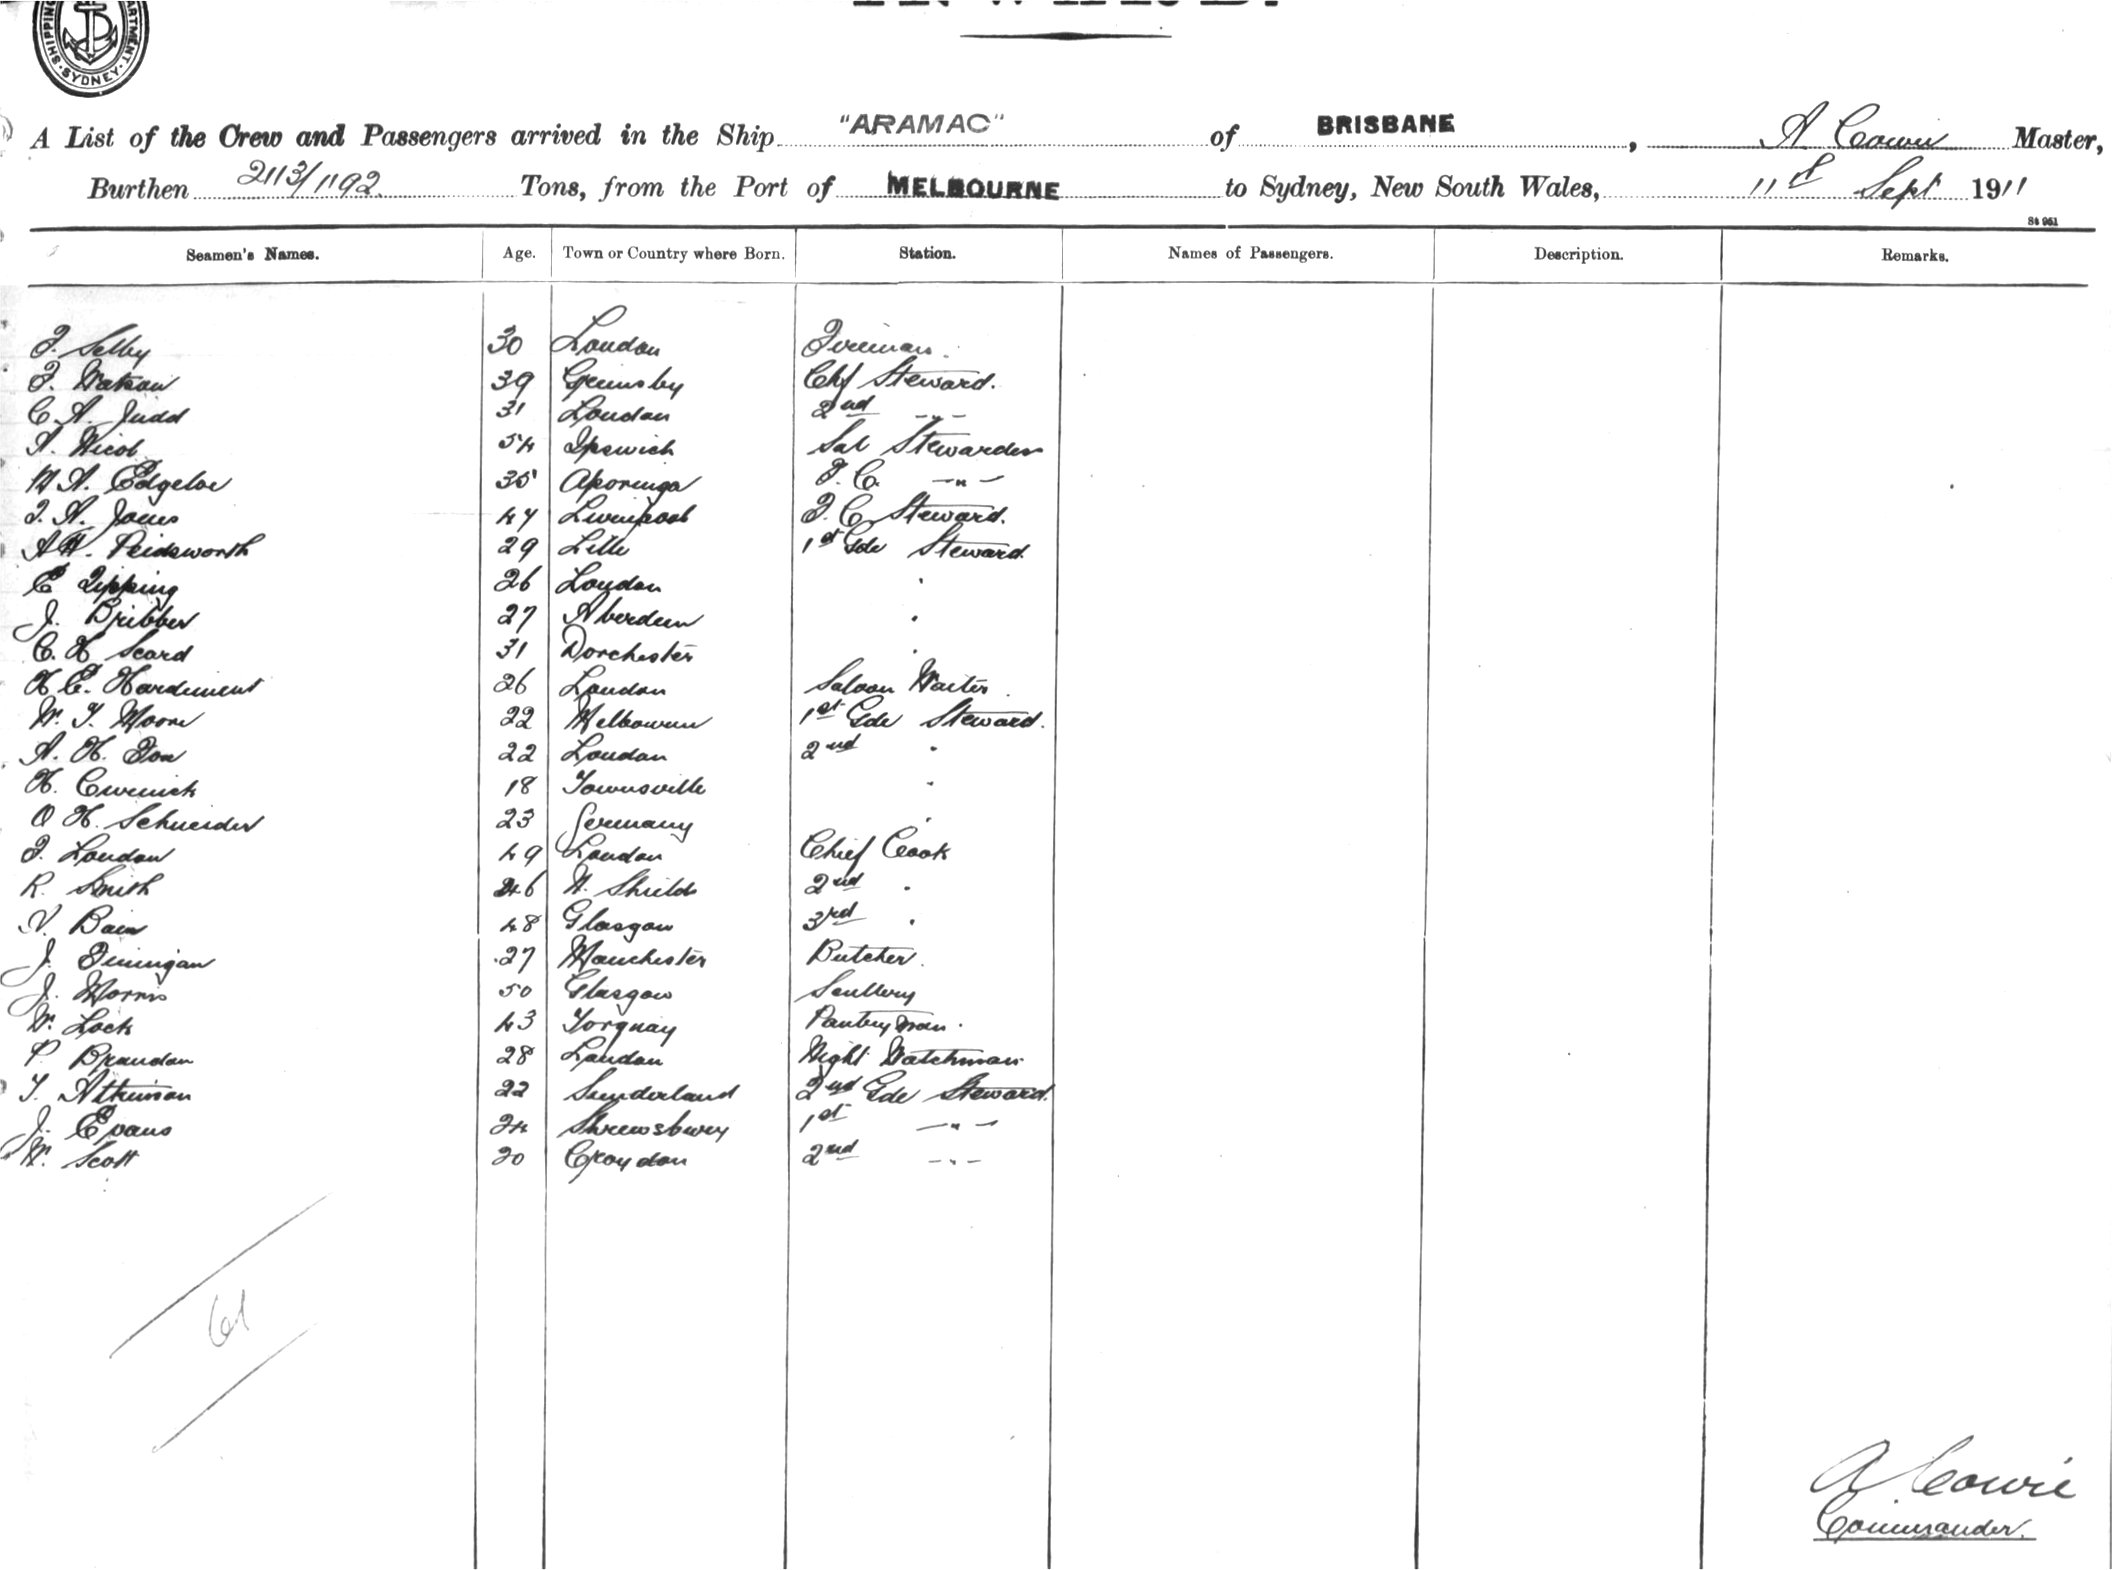 SHIPPING DEPARTMENT SYDNEY
INWARD.
A List of the Crew and Passengers arrived in the Ship "ARAMAC" of BRISBANE, A Cowie Master,
Burthen 2113/1192 Tons, from the Port of MELBOURNE to Sydney, New South Wales, 11th Sept 1911
St 951
Seamen's Names. Age. Town or Country where Born. Station. Names of Passengers. Description. Remarks.
F. Selby 30 London Fireman.
F. Watson 39 Grimsby Chf Steward.
C A. Judd 31 London 2nd -"-
A. Nicol 54 Ipswich Sal Stewardess
A. Edgeloe 35 F. C. -"-
F. A. Jones 47 Liverpool F. C. Steward.
A H. 29 1st Gde Steward
E Tipping 26 London "
J. Bribber 27 Aberdeen "
C. H Scard 31 Dorchester "
H E. Hardiment 26 London Saloon Waiter.
W. T. Moore 22 Melbourne 1st Gde Steward.
A. H. Fox 22 London 2nd "
H. 18 Townsville "
O H. Schneider 23 Germany "
F. London 49 London Chief Cook
R. Smith 46 N. Shields 2nd "
Bain 48 Glasgow 3rd "
J. Finnigan 27 Manchester Butcher.
J. Morris 50 Glasgow Scullery
W. Lock 43 Torquay Pantry man.
P. Brandon 28 London Night Watchman
T. Atkinson 22 Sunderland 2nd Gde Steward.
J. Evans 24 Shrewsbury 1st -"-
W. Scott 20 Croydon 2nd -"-
61
A. Cowie
Commander.